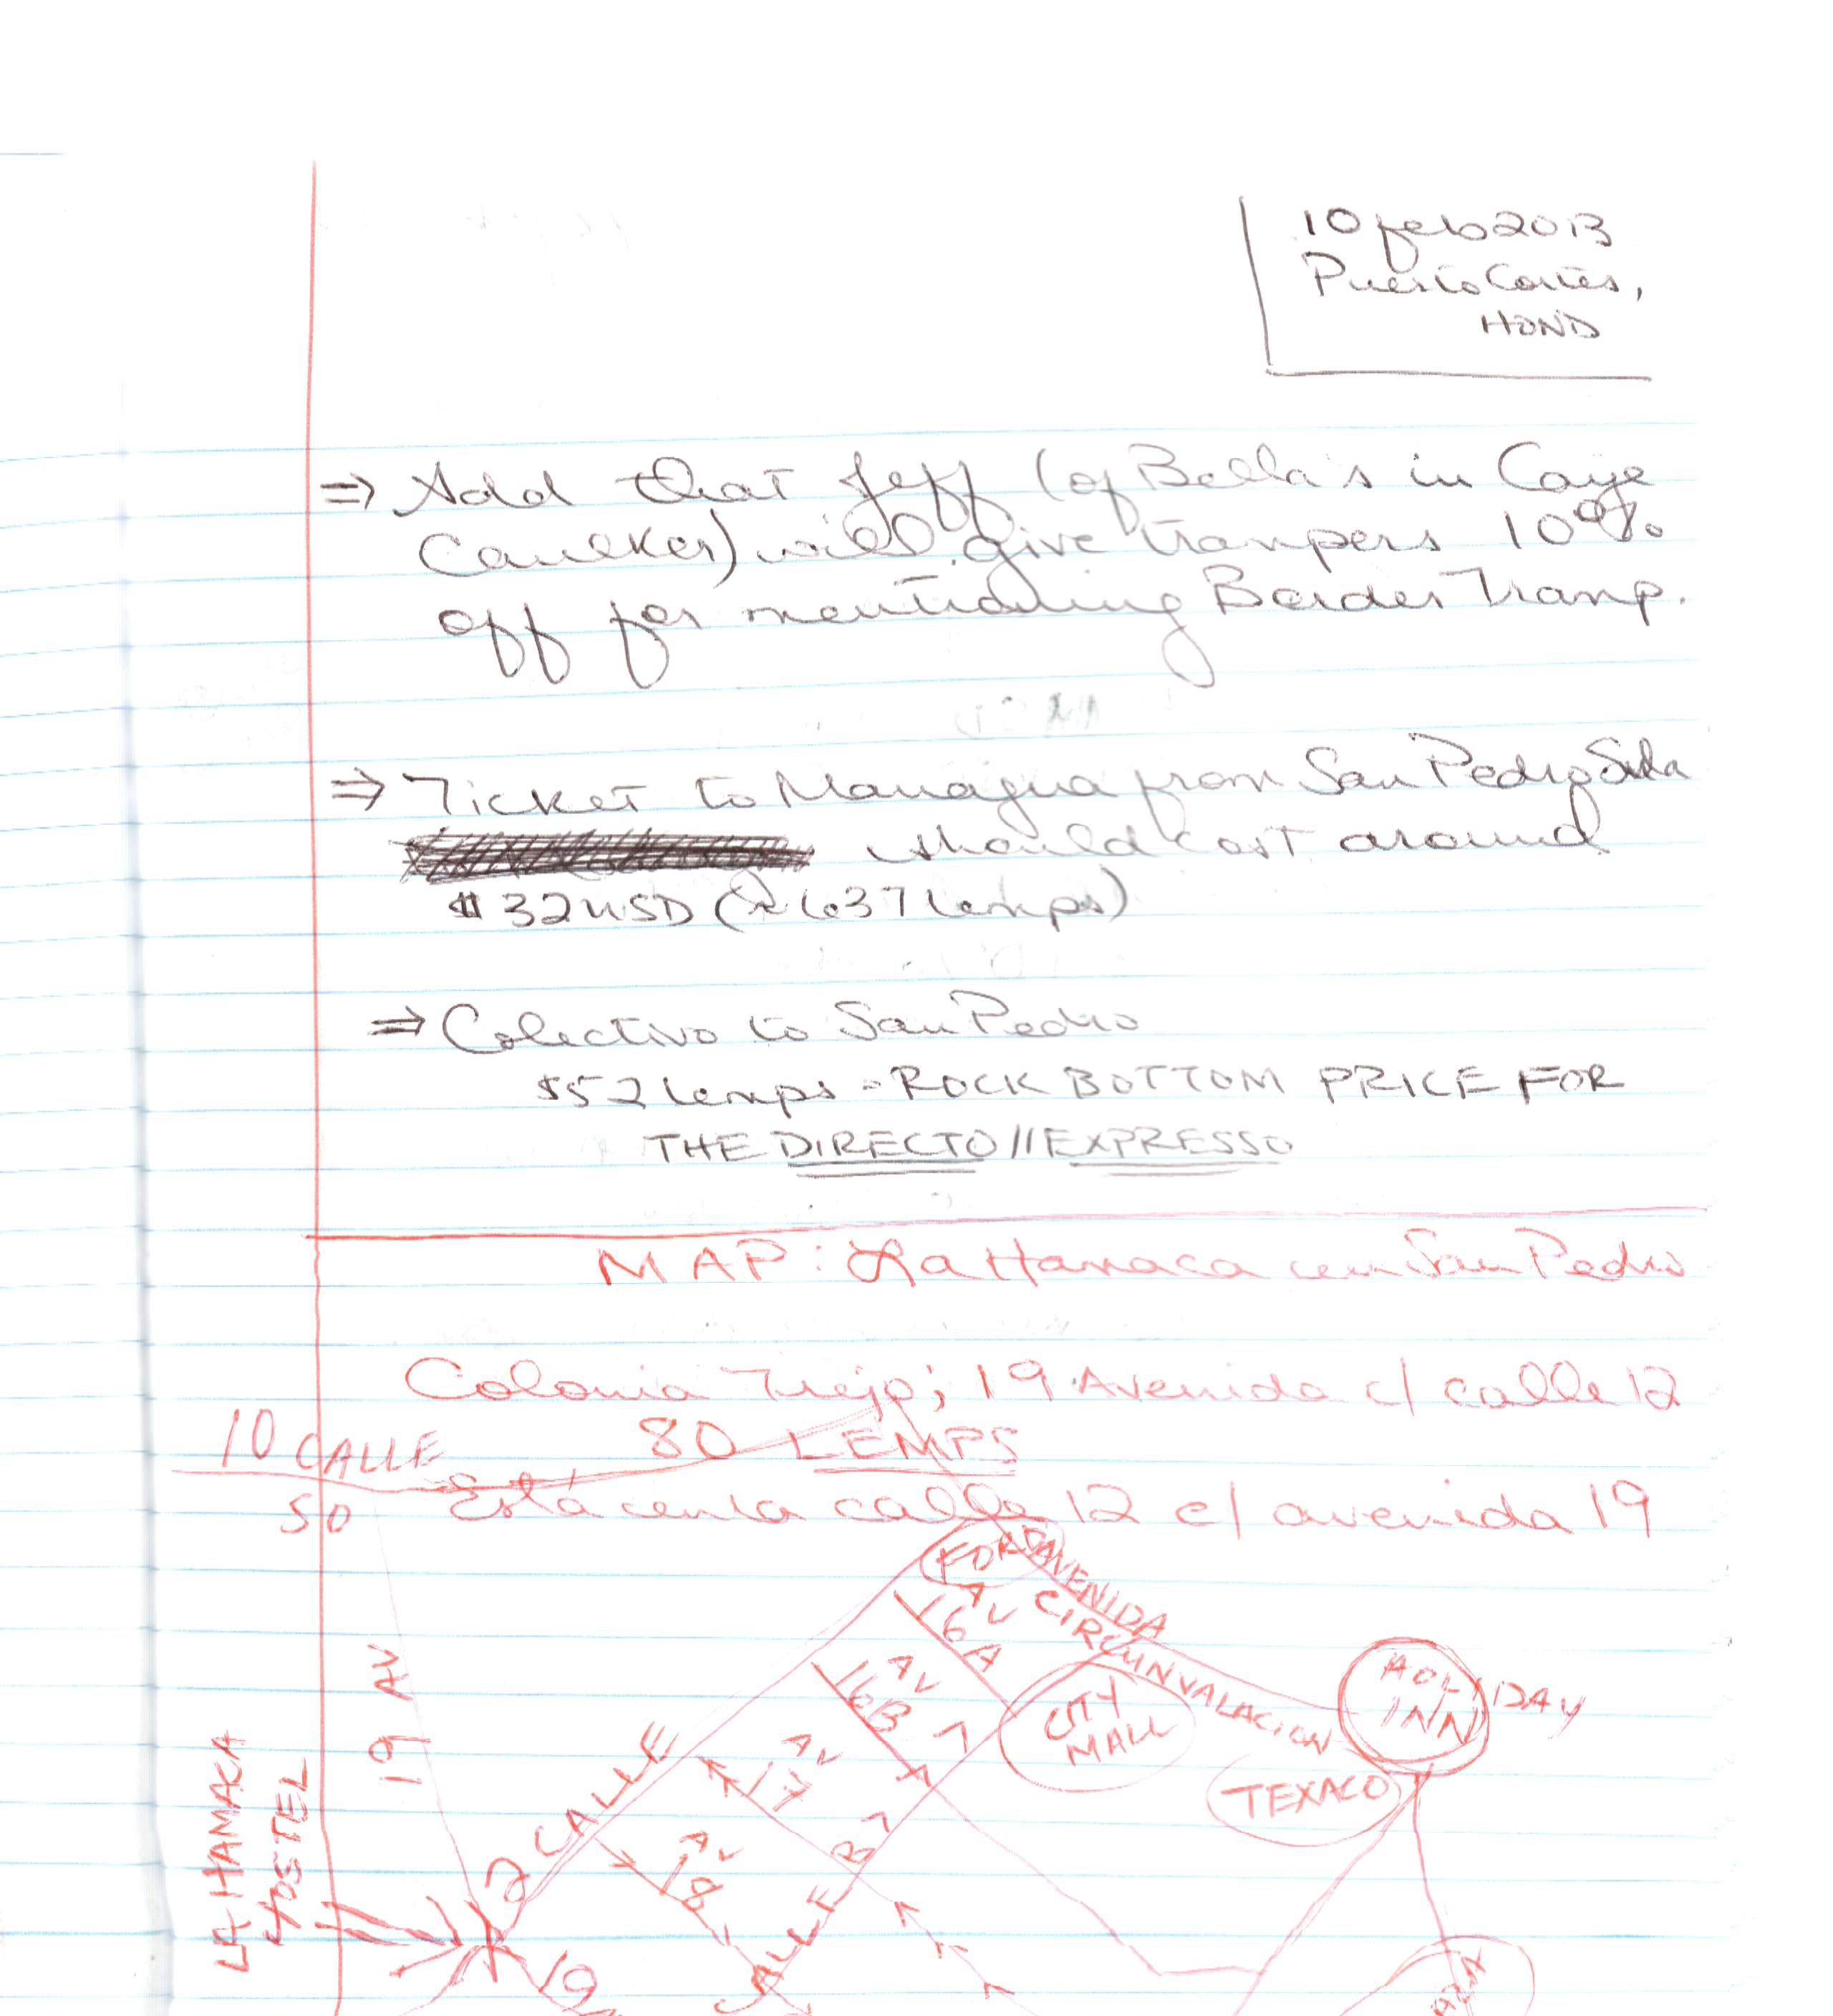 10 feb 2013
Puerto Cortés,
HOND
⇒ Add that Jeff (of Bella's in Caye
Caulker) will give trampers 10%
off for mentioning Border Tramp.
⇒ Ticket to Managua from San Pedro Sula
should cost around
$32 USD (≈ 637 lemps)
⇒ Colectivo to San Pedro
$52 lemps = ROCK BOTTOM PRICE FOR
THE DIRECTO//EXPRESSO
MAP: La Hamaca en San Pedro
Colonia Trejo; 19 Avenida c/ calle 12
10 CALLE 80 LEMPS
SO Está en la calle 12 c/ avenida 19
FORD
AVENIDA
CIRCUNVALACION
AV
16 A
AV
16B
HOLIDAY
INN
CITY
MALL
19 AV
TEXACO
AV
17
CALLE
AV
18
LA HAMACA
HOSTEL
12
CALLE
19